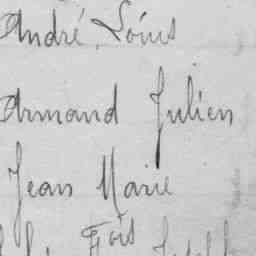 André, Loüis
Armand Julien
Jean Marie
Fois